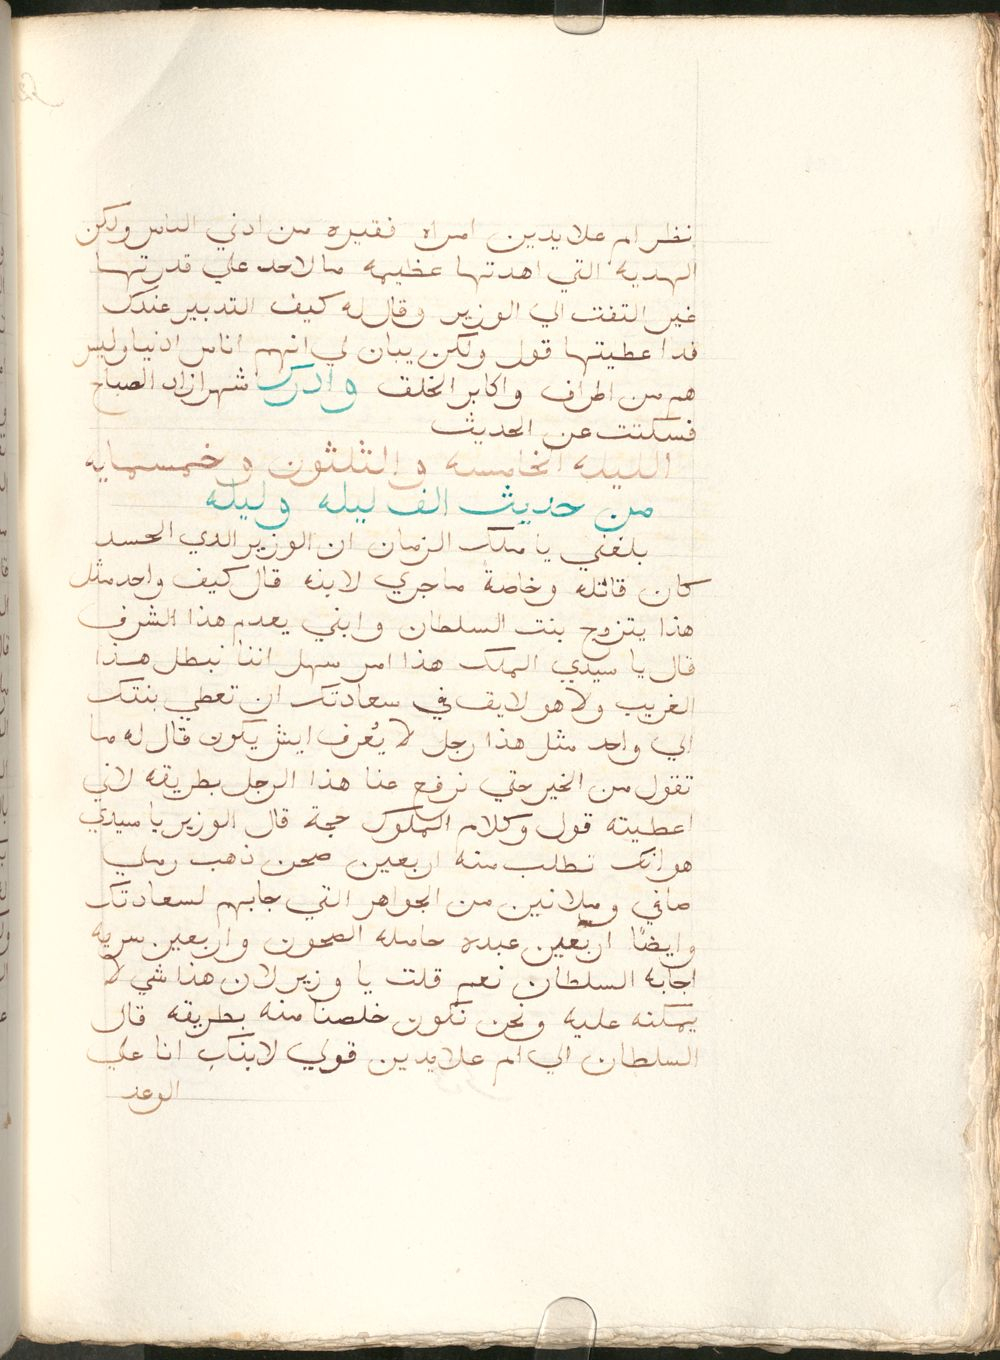 نظر ام علايدين امراه فقيره من ادني الناس ولكن
الهديه التي اهدتها عظيمه ما لاحد علي قدرتها
غير التفت الي الوزير وقال له كيف التدبير عندك
قد اعطيتها قول ولكن يبان لي انهم اناس ادنيا وليس
هم من اطراف واكابر الخلق وادرك شهرازاد الصباح
فسكتت عن الحديث
الليله الخامسه والثلثون وخمسمايه
من حديث الف ليله وليله
بلغني يا ملك الزمان ان الوزير الدي الحسد
كان قاتله وخاصة ماجري لابنه قال كيف واحد مثل
هذا يتزوج بنت السلطان وابني يعدم هذا الشرف
قال يا سيدي الملك هذا امر سهل اننا نبطل هذا
الغريب ولا هو لايق في سعادتك ان تعطي بنتك
الي واحد مثل هذا رجل لا يُعرف ايش يكون قال له ما
تقول من الخير حتي نرفع عنا هذا الرجل بطريقه لاني
اعطيته قول وكلام الملوك حجة قال الوزير يا سيدي
هو انك تطلب منه اربعين صحن ذهب رملي
صافي وملانين من الجواهر التي جابهم لسعادتك
وايضًا اربعين عبده حامله الصحون واربعين سريه
اجابه السلطان نعم قلت يا وزير لان هذا شي لا
يمكنه عليه ونحن نكون خلصنا منه بطريقه قال
السلطان الي ام علايدين قولي لابنك انا علي
الوعد